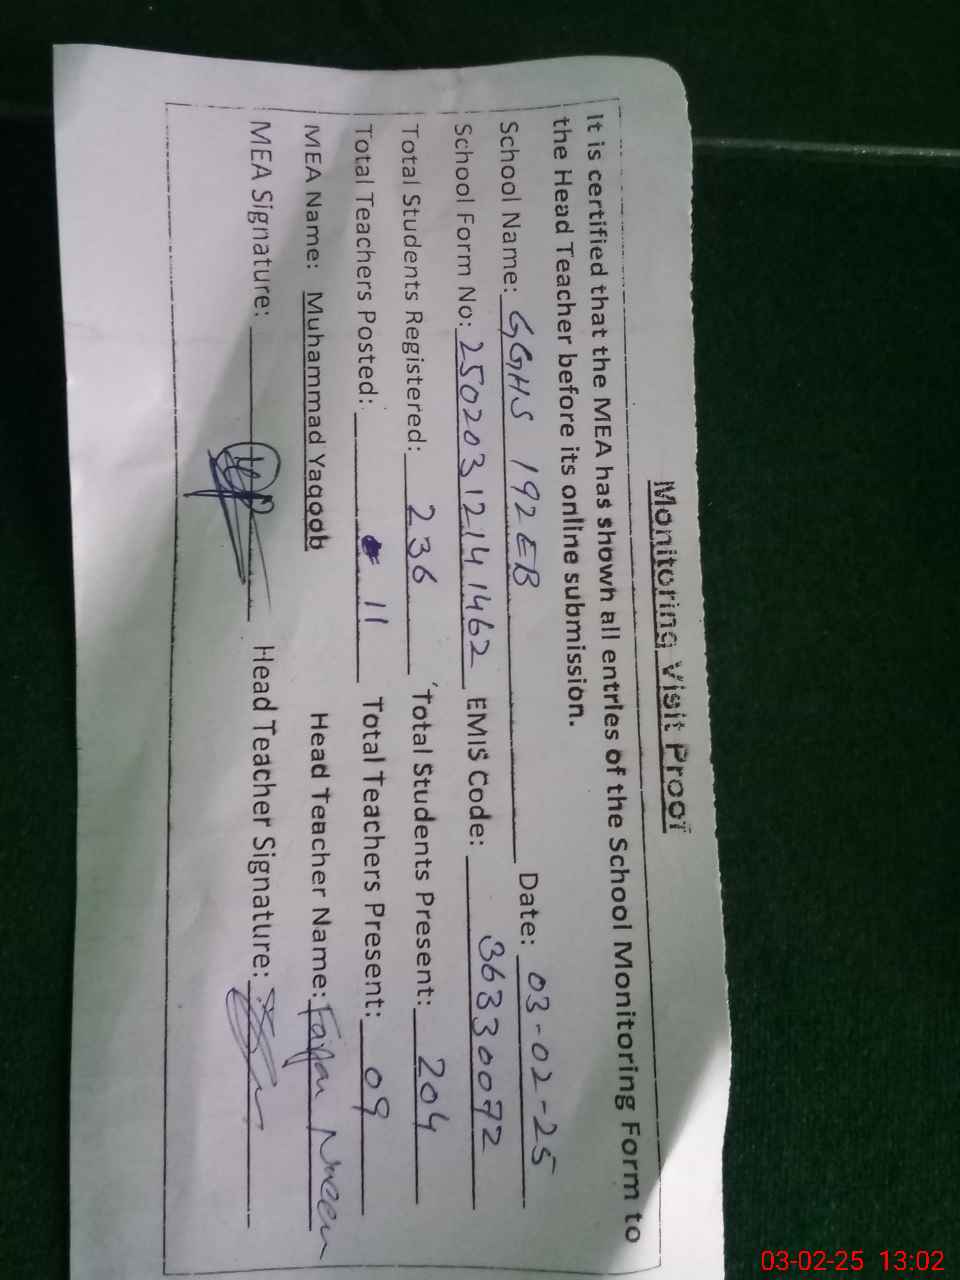 Monitoring Visit Proof
It is certified that the MEA has shown all entries of the School Monitoring Form to
the Head Teacher before its online submission.
School Name: GGHS 192EB Date: 03-02-25
School Form No: 25020312141462 EMIS Code: 36330072
Total Students Registered: 236 Total Students Present: 204
Total Teachers Posted: 11 Total Teachers Present: 09
MEA Name: Muhammad Yaqoob Head Teacher Name:
MEA Signature: Head Teacher Signature:
03-02-25 13:02